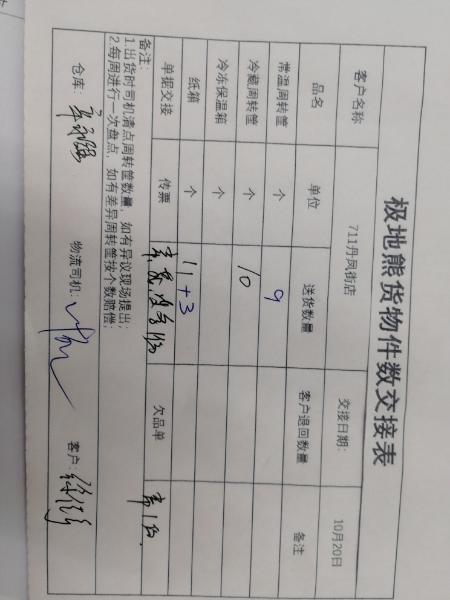 极地熊货物件数交接表
客户名称 711丹凤街店 交接日期： 10月20日
品名 单位 送货数量 客户退回数量 备注
常温周转筐 个 9
冷藏周转筐 个 10
冷冻保温箱 个
纸箱 个 11+3
单据交接 传票 欠品单
备注：
1.出货时司机清点周转筐数量，如有异议现场提出；
2.每周进行一次盘点，如有差异周转筐按个数赔偿；
仓库： 物流司机： 客户：